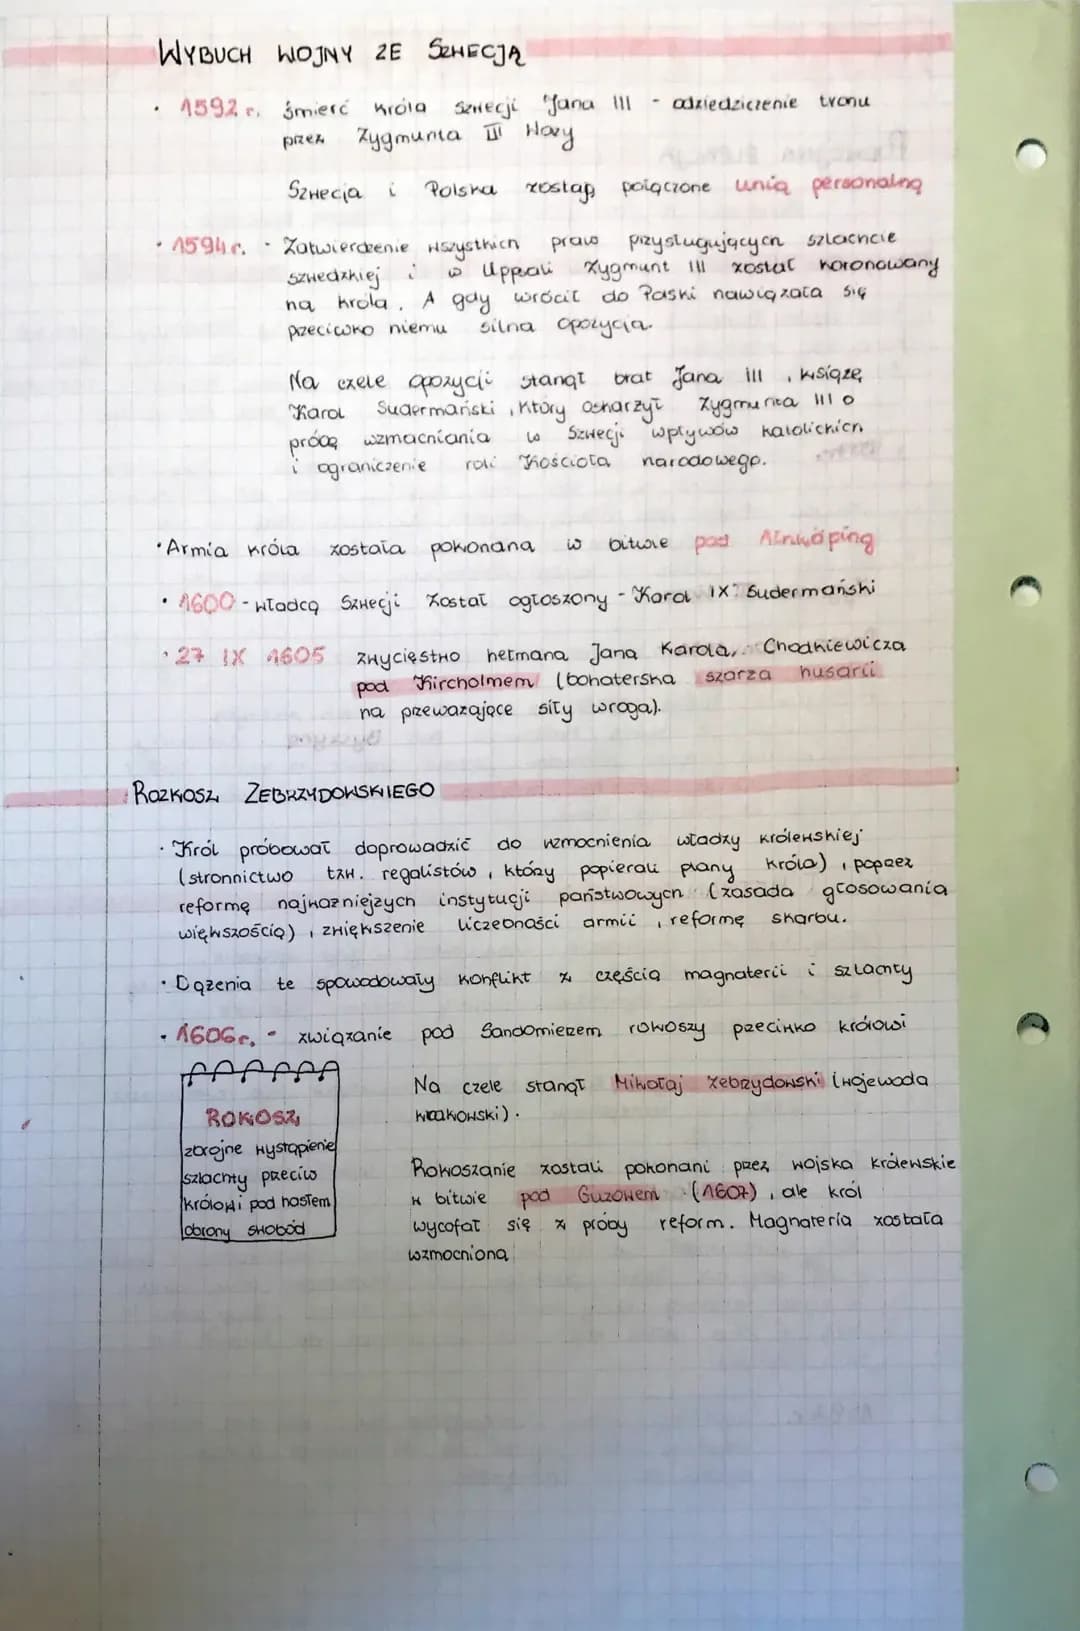 WYBUCH WOJNY ZE SZWECJĄ
• 1592 r. śmierć króla Szwecji Jana III - odziedziczenie tronu
przez Zygmunta III Wazy
Szwecja i Polska zostały połączone unią personalną
• 1594 r. • Zatwierdzenie wszystkich praw przysługujących szlachcie
szwedzkiej i w Uppsali Zygmunt III został koronowany
na króla. A gdy wrócił do Polski nawiązała się
przeciwko niemu silna opozycja.
Na czele opozycji stanął brat Jana III, książę
Karol Sudermański, który oskarżył Zygmunta III o
próbę wzmacniania w Szwecji wpływów katolickich
i ograniczenie roli Kościoła narodowego.
• Armia króla została pokonana w bitwie pod
• 1600 - władcą Szwecji został ogłoszony - Karol IX Sudermański
• 27 IX 1605 zwycięstwo hetmana Jana Karola Chodkiewicza
pod Kircholmem (bohaterska szarża husarii
na przeważające siły wroga).
ROZKOSZ ZEBRZYDOWSKIEGO
• Król próbował doprowadzić do wzmocnienia władzy królewskiej
(stronnictwo tzw. regalistów, którzy popierali plany króla), poprzez
reformę najważniejszych instytucji państwowych (zasada głosowania
większością), zwiększenie liczebności armii, reformę skarbu.
• Dążenia te spowodowały konflikt z częścią magnaterii i szlachty
• 1606 r. - związanie pod Sandomierzem rokoszy przeciwko królowi
Na czele stanął Mikołaj Zebrzydowski (wojewoda
krakowski).
ROKOSZ
zbrojne wystąpienie
szlachty przeciw
królowi pod hasłem
obrony swobód
Rokoszanie zostali pokonani przez wojska królewskie
w bitwie pod Guzowem (1607), ale król
wycofał się z próby reform. Magnateria została
wzmocniona